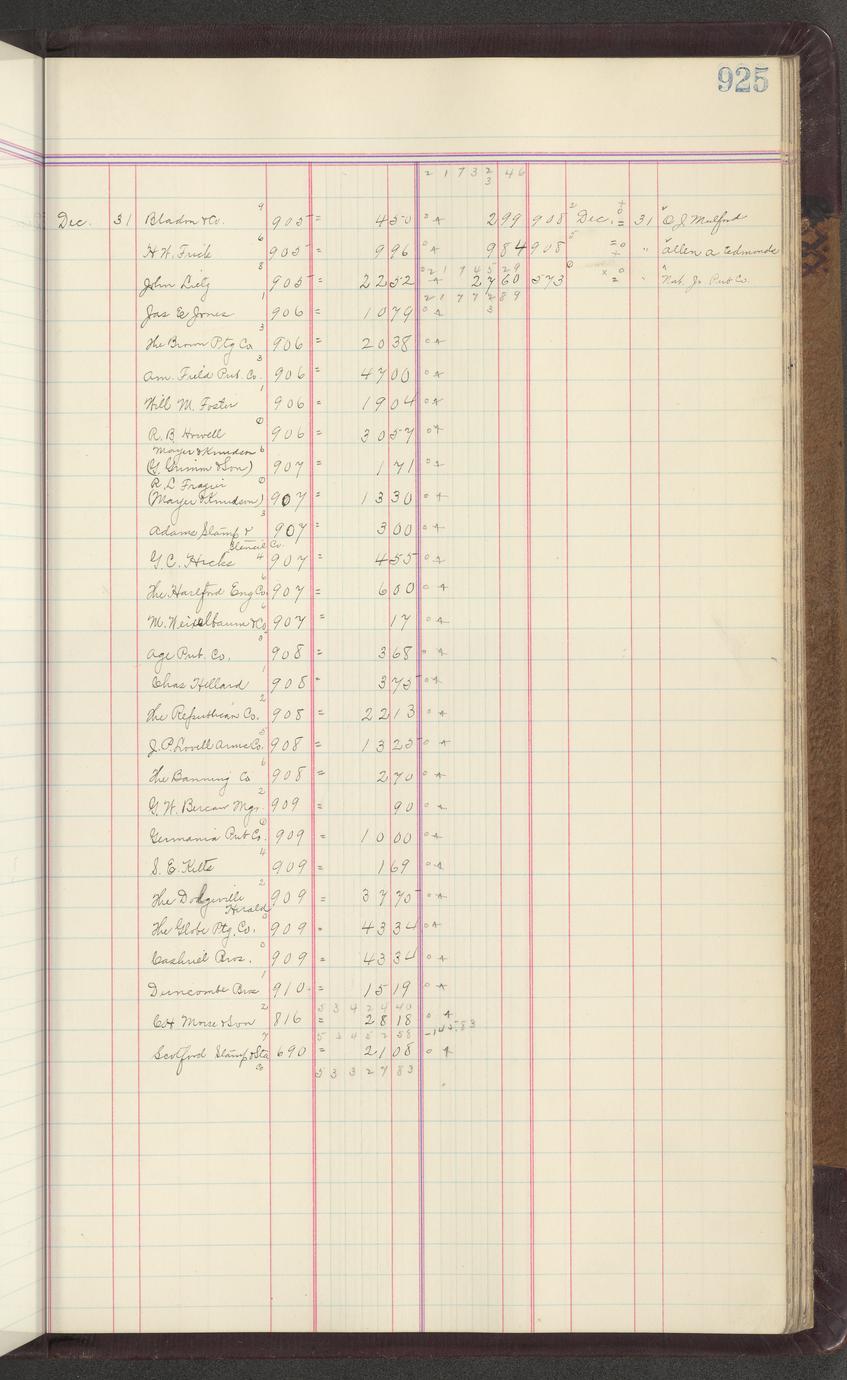 925
2 1 7 3 2 46
3
Dec. 31 Bladon & Co. 9 905 = 450 299 908 Dec. 31 O J Mulford
H. W. Frick 6 905 = 996 984 908 " Allen a Edmonds
2 1 7 4 5 29
John Lietz 8 905 = 2252 2760 573 " Nat. Jr. Pub Co.
2 1 7 7 2 89
3
Jas E Jones 1 906 = 1079
The Brown Ptg Co 3 906 = 2038
Am. Field Pub. Co. 3 906 = 4700
Will M. Foster 1 906 = 1904
R. B. Howell 0 906 = 3057
Mayer & Knudson 6
(G. Grimm & Son) 907 = 171
R. L. Frazier 0
(Mayer & Knudson) 907 = 1330
Adams Stamp & 3 907 = 300
Stencil Co.
G. C. Hicks 4 907 = 455
The Hartford Eng Co. 6 907 = 600
M. Weiselbaum & Co. 6 907 = 17
Age Pub. Co. 0 908 = 368
Chas Hillard 1 908 = 375
The Republican Co. 2 908 = 2213
J. P. Lovell Arms Co. 5 908 = 1325
The Banning Co 6 908 = 270
G. W. Bercaw Mgr. 2 909 = 90
Germania Pub Co. 0 909 = 1000
S. E. Kilts 4 909 = 169
The Dodgeville 2 909 = 3770
Herald
The Globe Ptg. Co. 3 909 = 4334
Cashriel Bros. 0 909 = 4334
Duncombe Bros 1 910 = 1519
5 3 4 2 4 40
C H Morse & Son 2 816 = 2818
5 3 4 5 2 58
Scotford Stamp & Sta 7 690 = 2108
Co
5 3 3 2 7 83